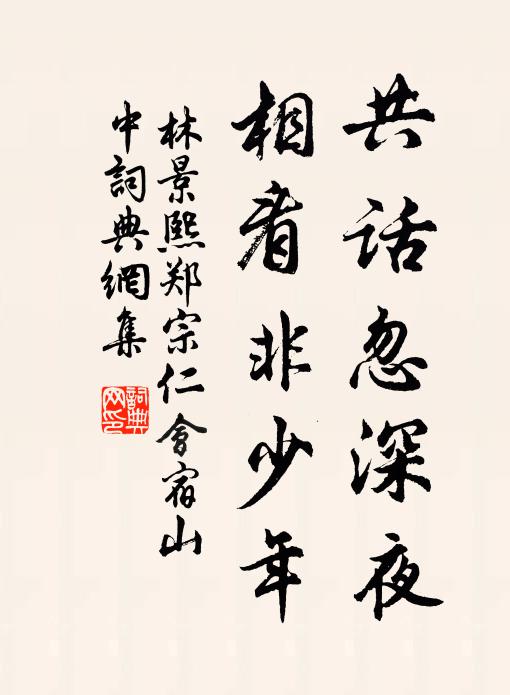 共话忽深夜
相看非少年
林景熙郑宗仁会宿山
中詞典網集
詞典
网印